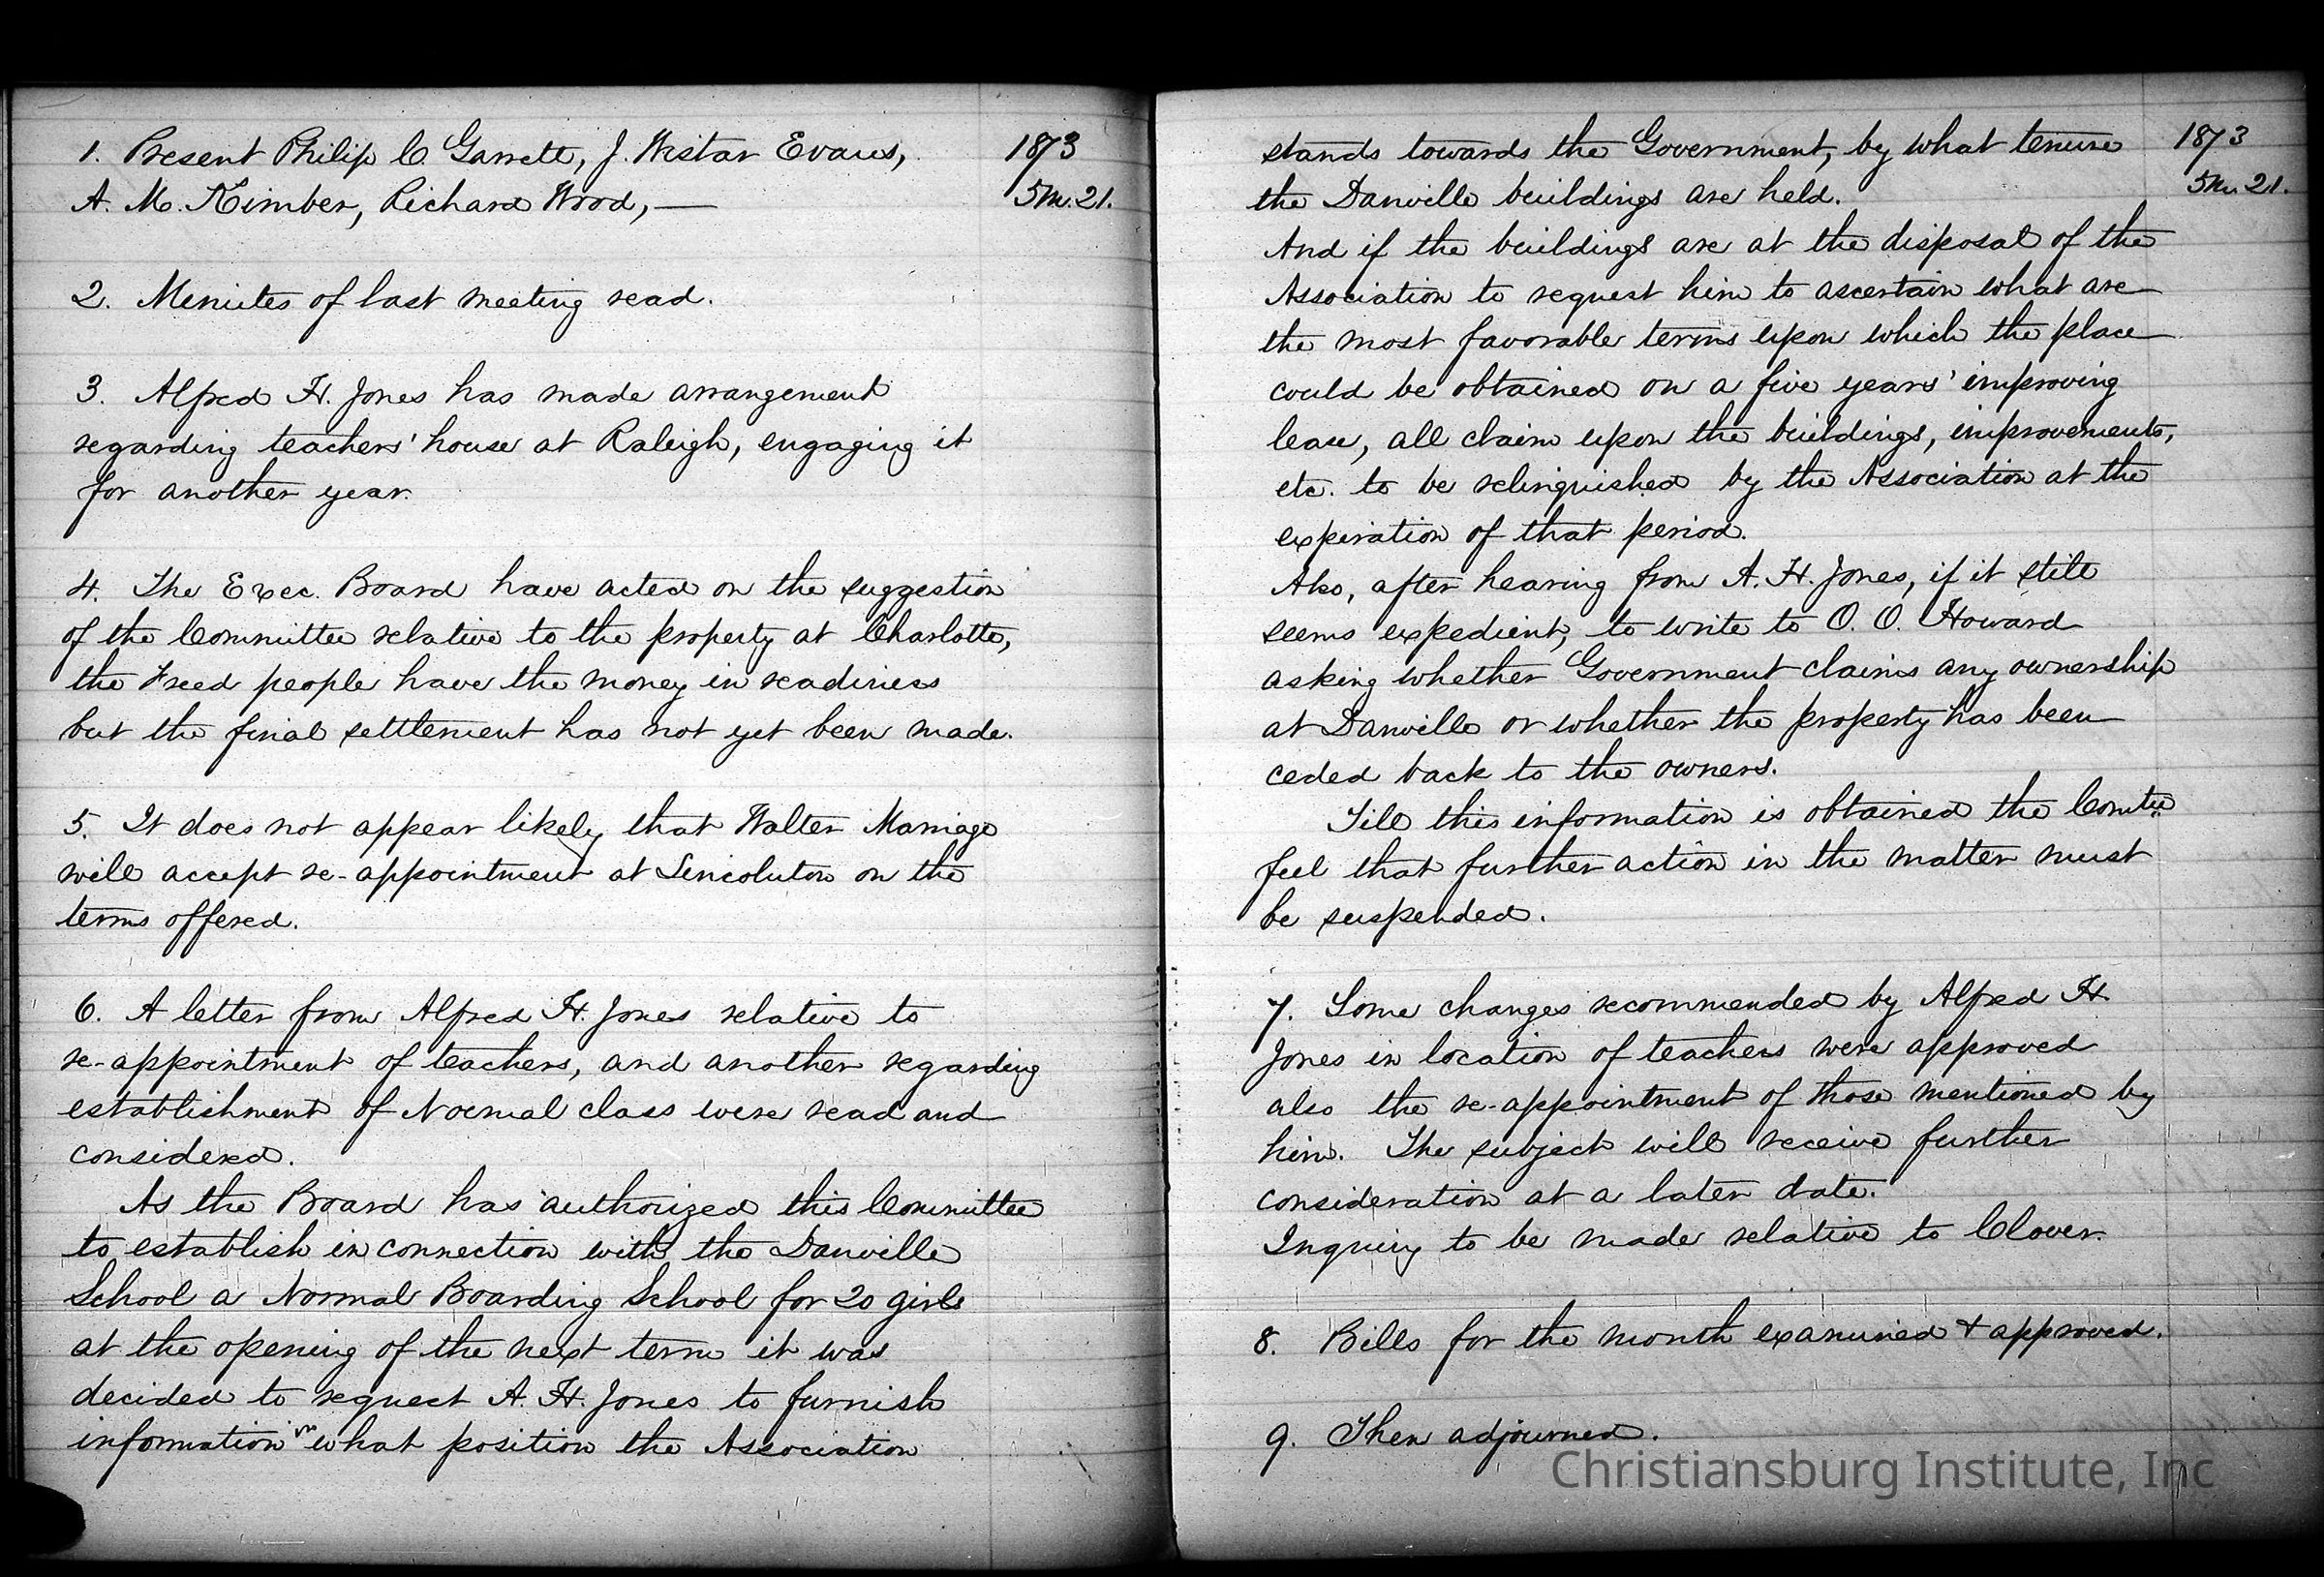 1873
5 Mo. 21.
1. Present Philip C. Garrett, J. Wistar Evans,
A. M. Kimber, Richard Wood, —
2. Minutes of last meeting read.
3. Alfred H. Jones has made arrangement
regarding teachers' house at Raleigh, engaging it
for another year.
4. The Exec. Board have acted on the suggestion
of the Committee relative to the property at Charlotte,
the Freed people have the money in readiness
but the final settlement has not yet been made.
5. It does not appear likely that Walter Marriage
will accept re-appointment at Lincolnton on the
terms offered.
6. A letter from Alfred H. Jones relative to
re-appointment of teachers, and another regarding
establishment of Normal class were read and
considered.
As the Board has authorized this Committee
to establish in connection with the Danville
School a Normal Boarding School for 20 girls
at the opening of the next term it was
decided to request A. H. Jones to furnish
information in what position the Association
1873
5 Mo. 21.
stands towards the Government, by what tenure
the Danville buildings are held.
And if the buildings are at the disposal of the
Association to request him to ascertain what are
the most favorable terms upon which the place
could be obtained on a five years' improving
lease, all claim upon the buildings, improvements,
etc. to be relinquished by the Association at the
expiration of that period.
Also, after hearing from A. H. Jones, if it still
seems expedient, to write to O. O. Howard
asking whether Government claims any ownership
at Danville or whether the property has been
ceded back to the owners.
Till this information is obtained the Comtee
feel that further action in the matter must
be suspended.
7. Some changes recommended by Alfred H.
Jones in location of teachers were approved
also the re-appointment of those mentioned by
him. The subject will receive further
consideration at a later date.
Inquiry to be made relative to Clover.
8. Bills for the month examined & approved.
9. Then adjourned.
Christiansburg Institute, Inc